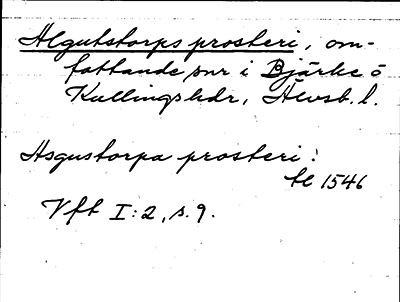 Algutstorps prosteri, om-
fattande snr i Bjärke o
Kullings hdr, Älvsb. l.
Asgustorpa prosteri:
tl 1546
Vft I:2, s. 9.